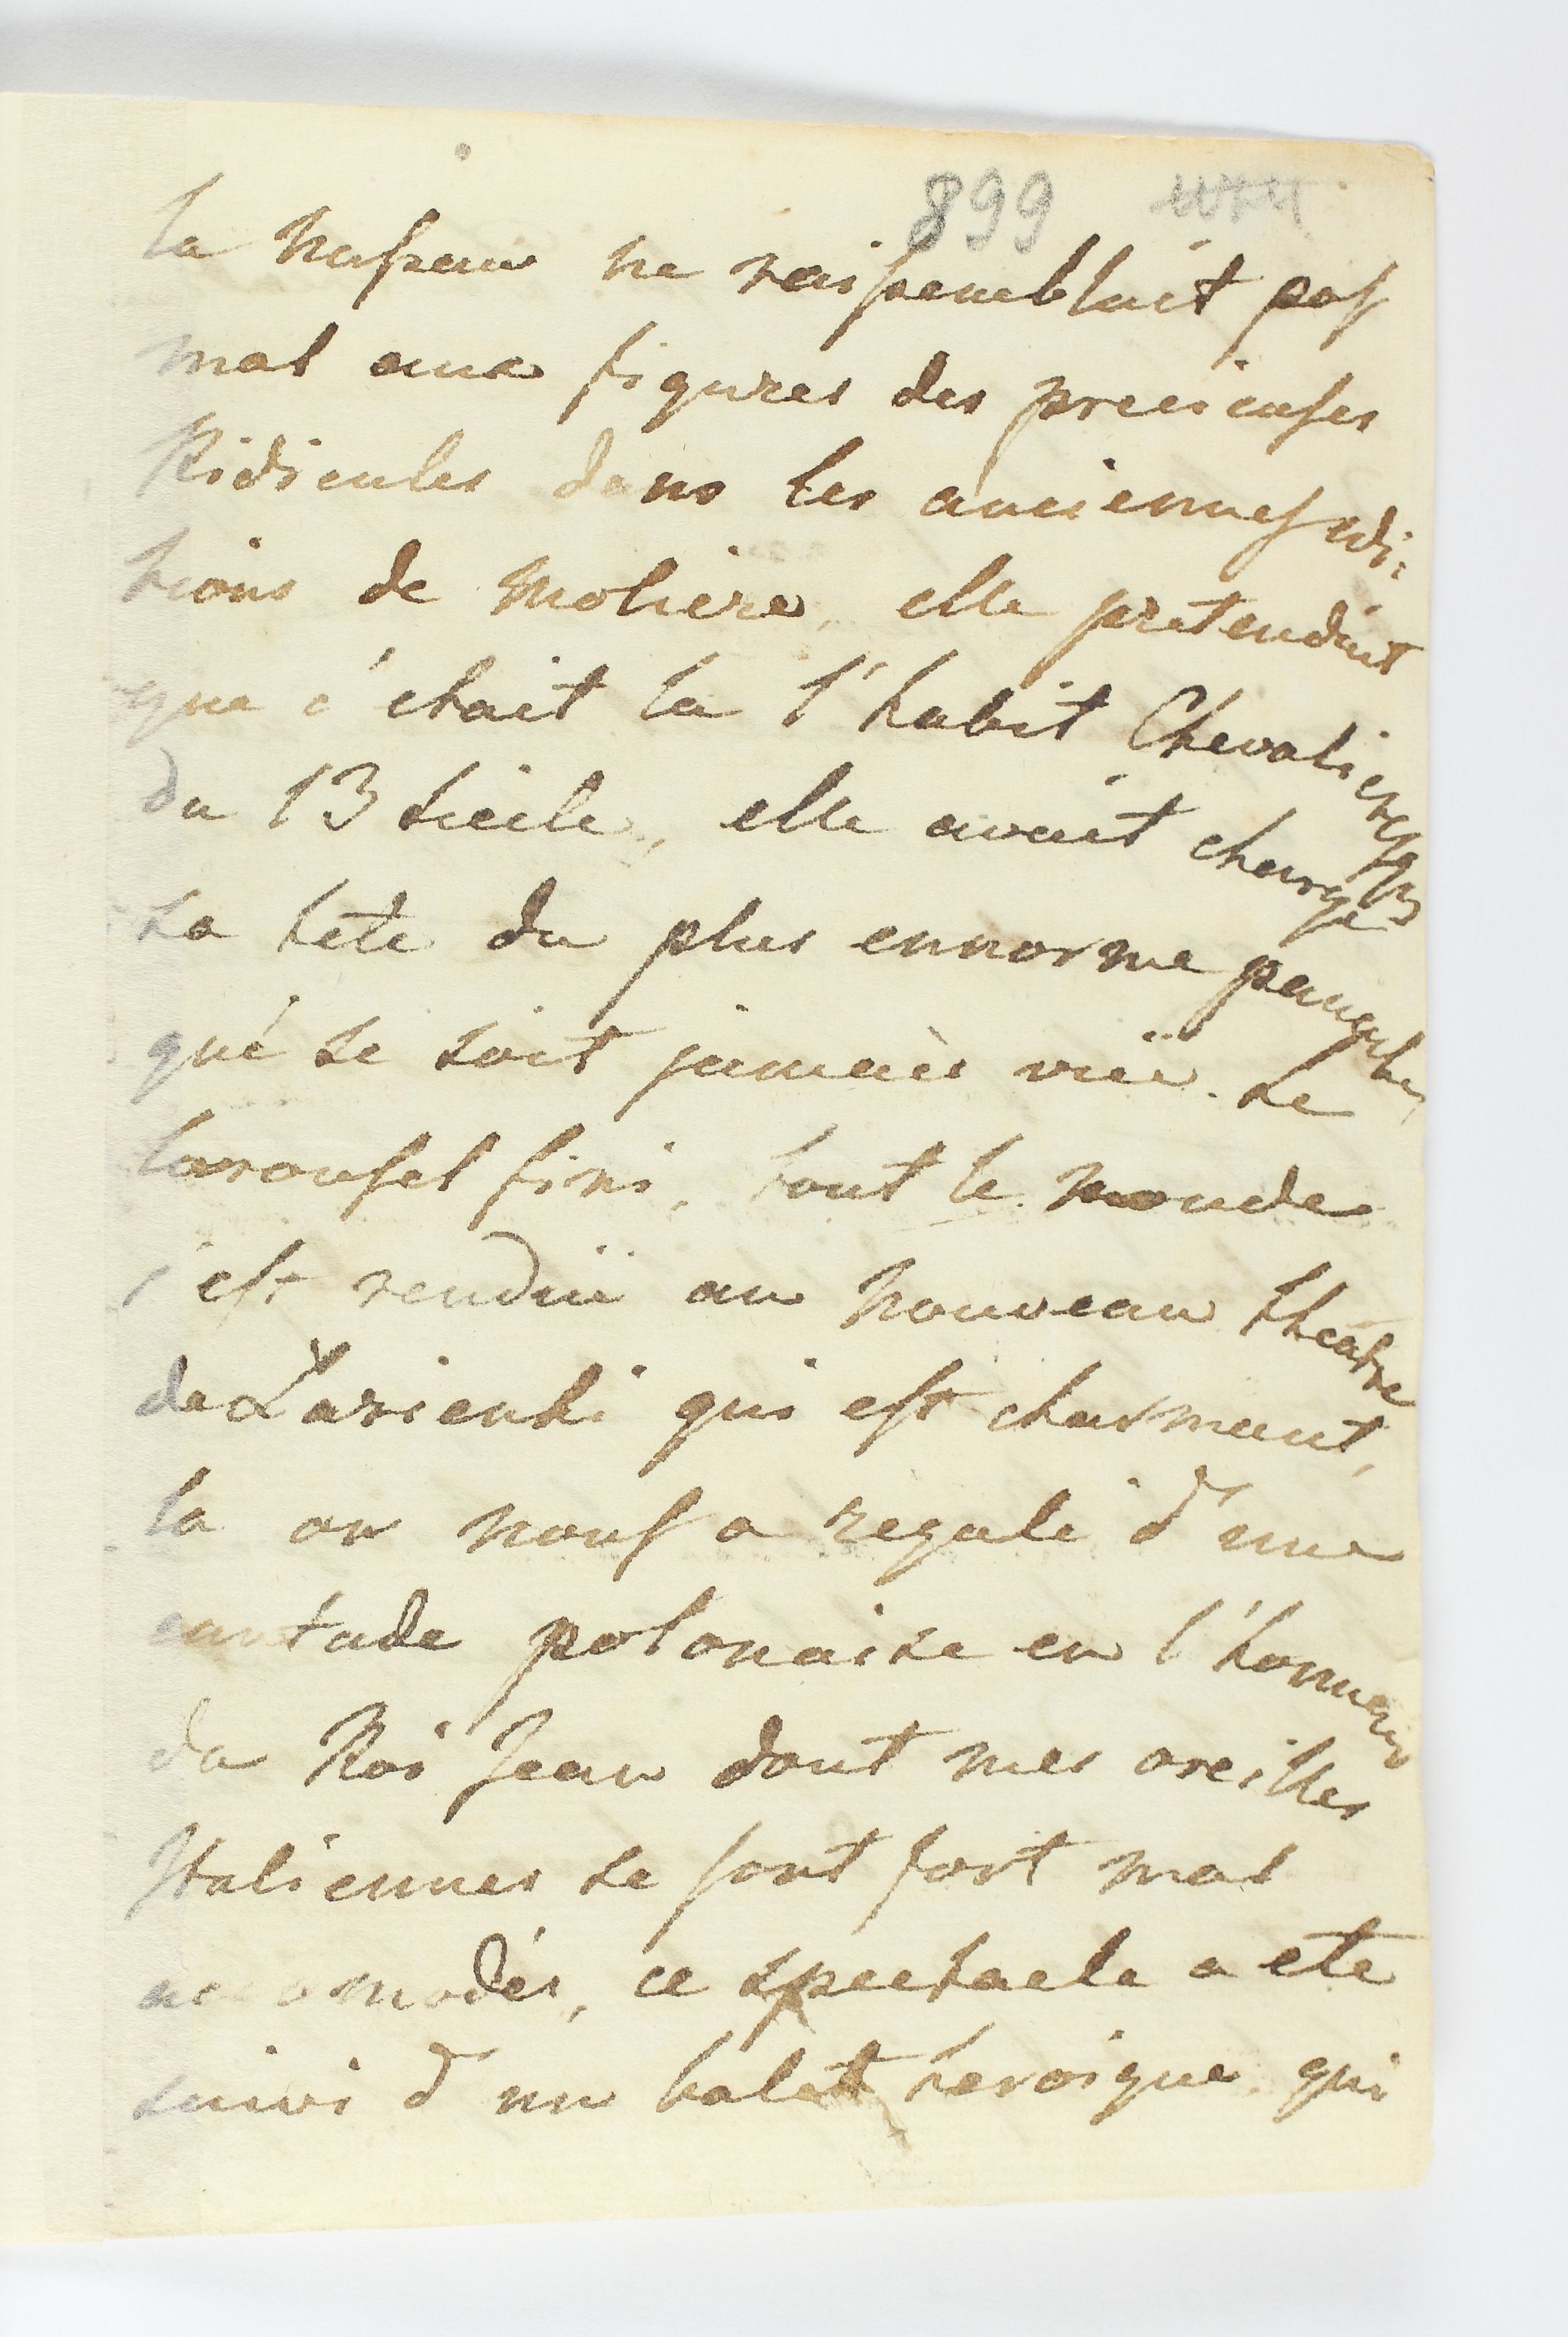 899
la Nassau ne raissemblait pas
mal aux figures des precieuses
Ridicules dans les anciennes edi:
tions de Moliere, elle pretendait
que c'etait la l'habit Chevaleresque
du 13 siecle, elle avait chargé
sa tete du plus ennorme panache,
qué se soit jamais vüe. Le
Carousel fini, tout le monde
s'est rendüe au Nouveau theatre
de Łazienki qui est charmant,
la on nous a regalé d'une
cantade polonaise en l'honneur
du Roi Jean dont mes oreilles
Italiennes se sont fort mal
accomodés, ce spectacle a eté
suivi d'un balet heroique qui